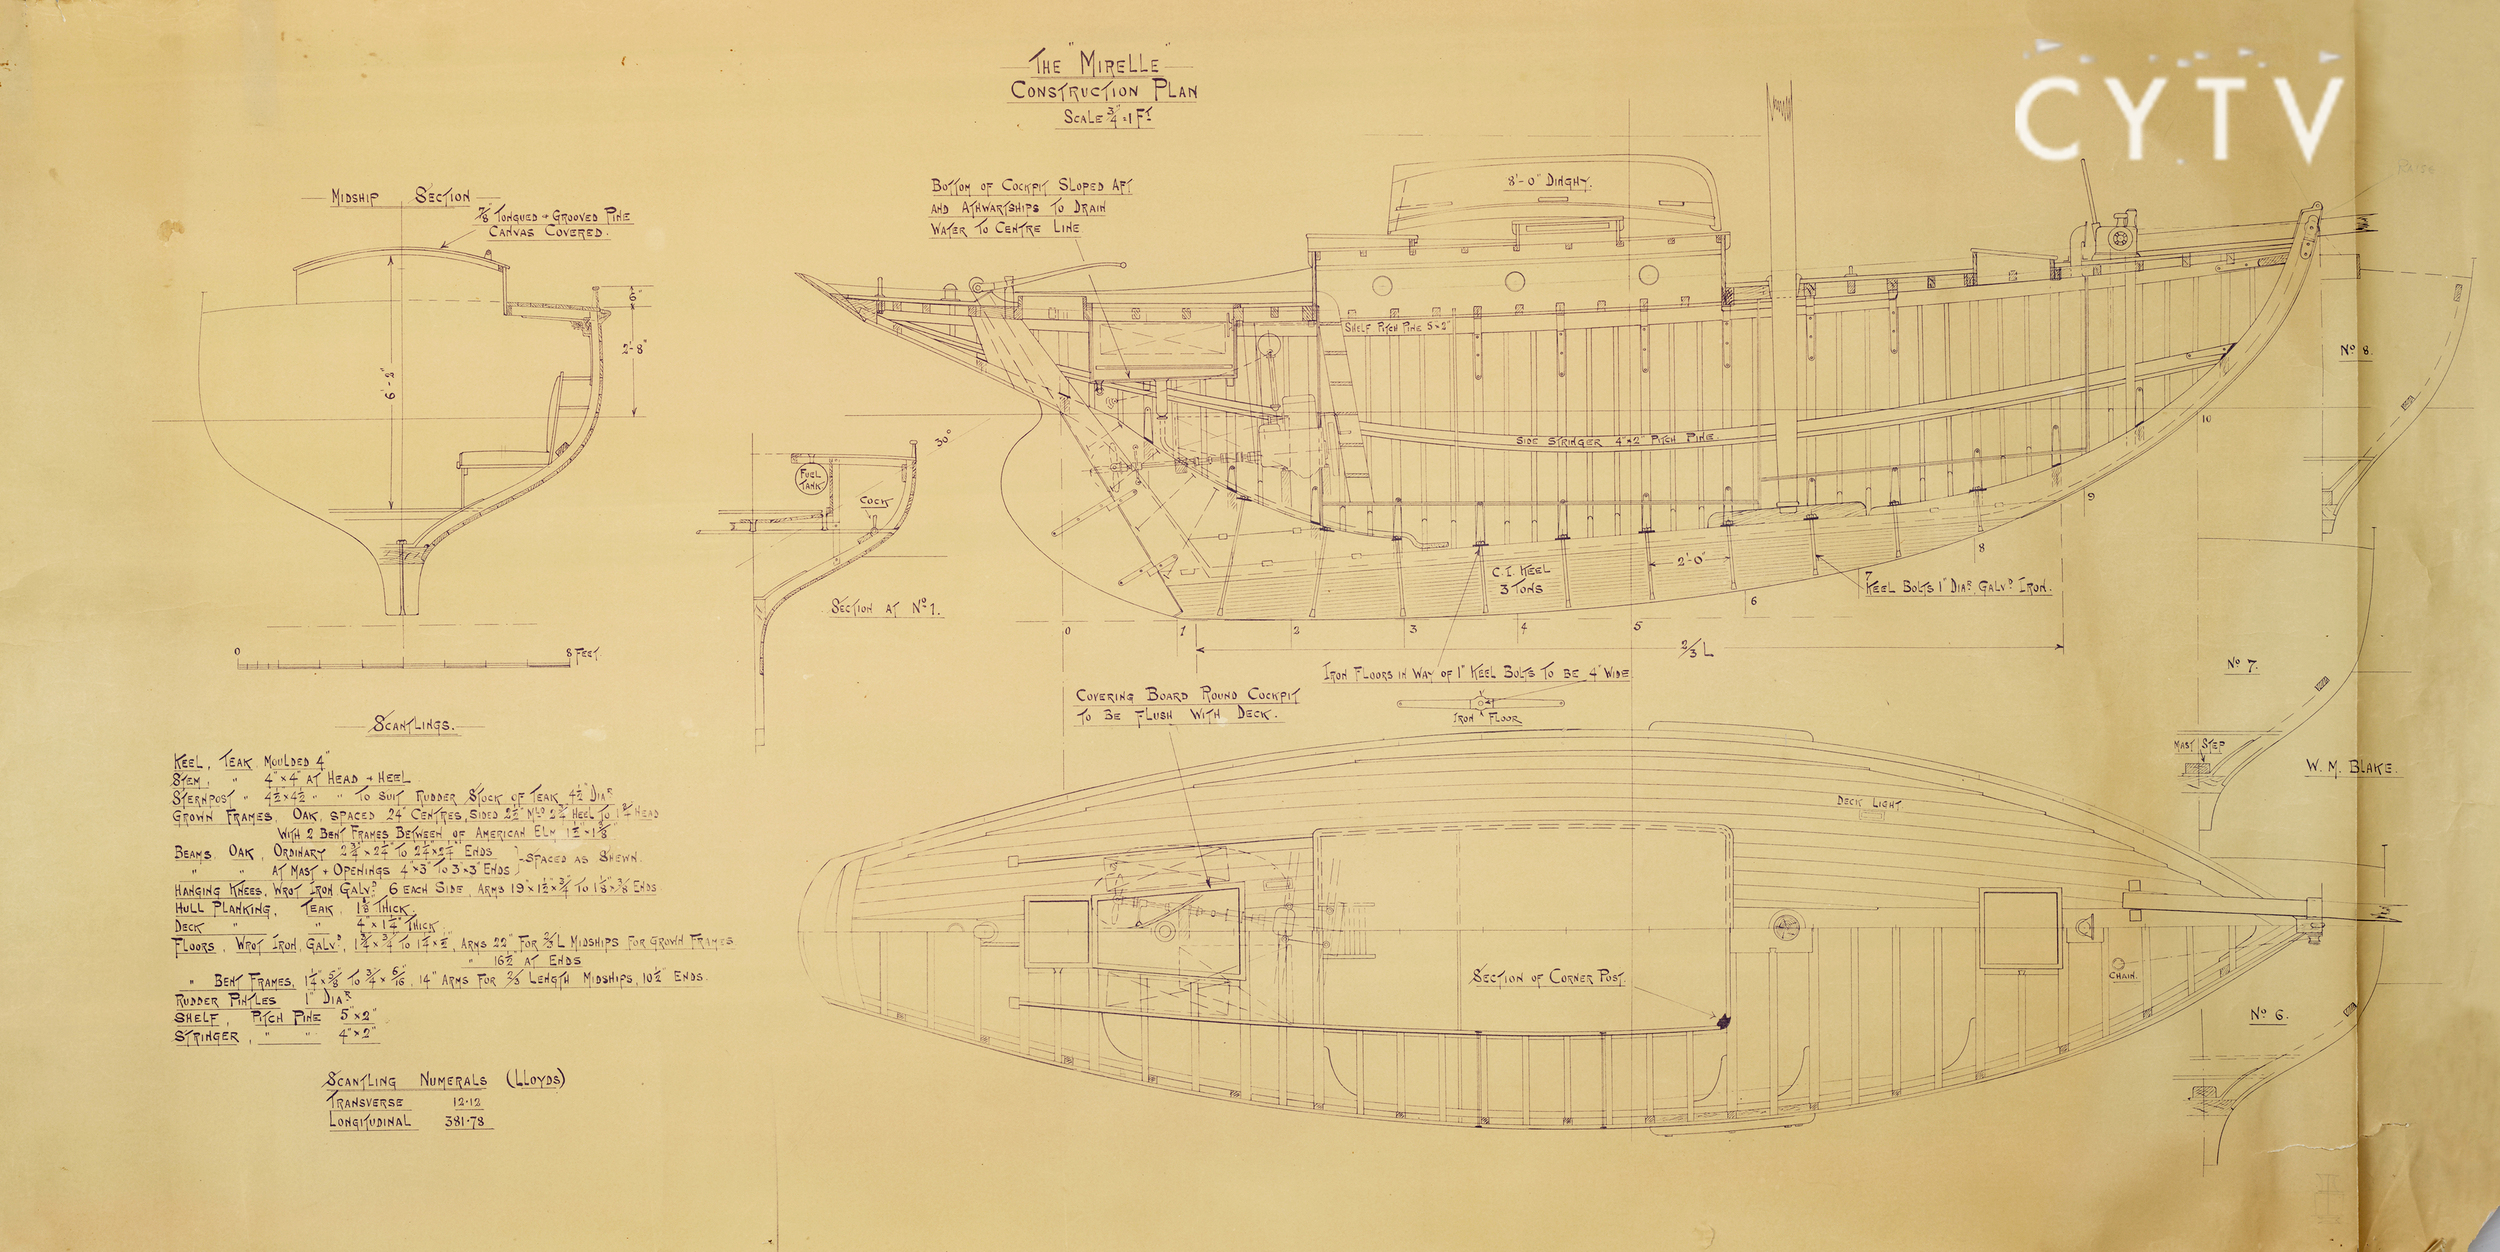 THE "MIRELLE"
CONSTRUCTION PLAN
SCALE 3/4" = 1 FT
CYTV
MIDSHIP SECTION
7/8" TONGUED & GROOVED PINE
CANVAS COVERED.
6'-2"
6"
2'-8"
0 8 FEET.
BOTTOM OF COCKPIT SLOPED AFT
AND ATHWARTSHIPS TO DRAIN
WATER TO CENTRE LINE
8'-0" DINGHY.
SHELF PITCH PINE 5"x2"
SIDE STRINGER 4"x2" PITCH PINE.
30°
FUEL
TANK
COCK
SECTION AT No 1.
C.I. KEEL
3 TONS
2'-0"
KEEL BOLTS 1" DIAR. GALVD. IRON.
0 1 2 3 4 5 6 8 9 10
2/3 L
IRON FLOORS IN WAY OF 1" KEEL BOLTS TO BE 4" WIDE
IRON FLOOR
COVERING BOARD ROUND COCKPIT
TO BE FLUSH WITH DECK.
No 8.
No 7.
MAST STEP
W. M. BLAKE.
DECK LIGHT
SECTION OF CORNER POST.
CHAIN.
No 6.
SCANTLINGS.
KEEL, TEAK MOULDED 4"
STEM, " 4"x4" AT HEAD & HEEL
STERNPOST " 4½x4½ " " TO SUIT RUDDER STOCK OF TEAK 4½" DIAR.
GROWN FRAMES, OAK, SPACED 24" CENTRES, SIDED 2½" MLD 2¾ HEEL TO 1¾ HEAD
WITH 2 BENT FRAMES BETWEEN OF AMERICAN ELM
BEAMS, OAK, ORDINARY 2¾"x2¼" TO 2¼"x2¼" ENDS
" " AT MAST & OPENINGS 4"x3" TO 3"x3" ENDS } SPACED AS SHEWN.
HANGING KNEES, WROT IRON GALVD. 6 EACH SIDE, ARMS 19"x1½"x¾ TO 1⅛"x⅜ ENDS
HULL PLANKING, TEAK, 1⅛" THICK.
DECK " " 4"x1¼" THICK
FLOORS, WROT IRON, GALVD. 1¾"x¾" TO 1¼"x½", ARMS 22" FOR 2/3 L MIDSHIPS FOR GROWN FRAMES
" 16½" AT ENDS
" BENT FRAMES, 1¼"x⅝" TO ¾"x 6/16", 14" ARMS FOR 2/3 LENGTH MIDSHIPS, 10½" ENDS.
RUDDER PINTLES 1" DIAR
SHELF, PITCH PINE 5"x2"
STRINGER, " " 4"x2"
SCANTLING NUMERALS (LLOYDS)
TRANSVERSE 12·12
LONGITUDINAL 381·78